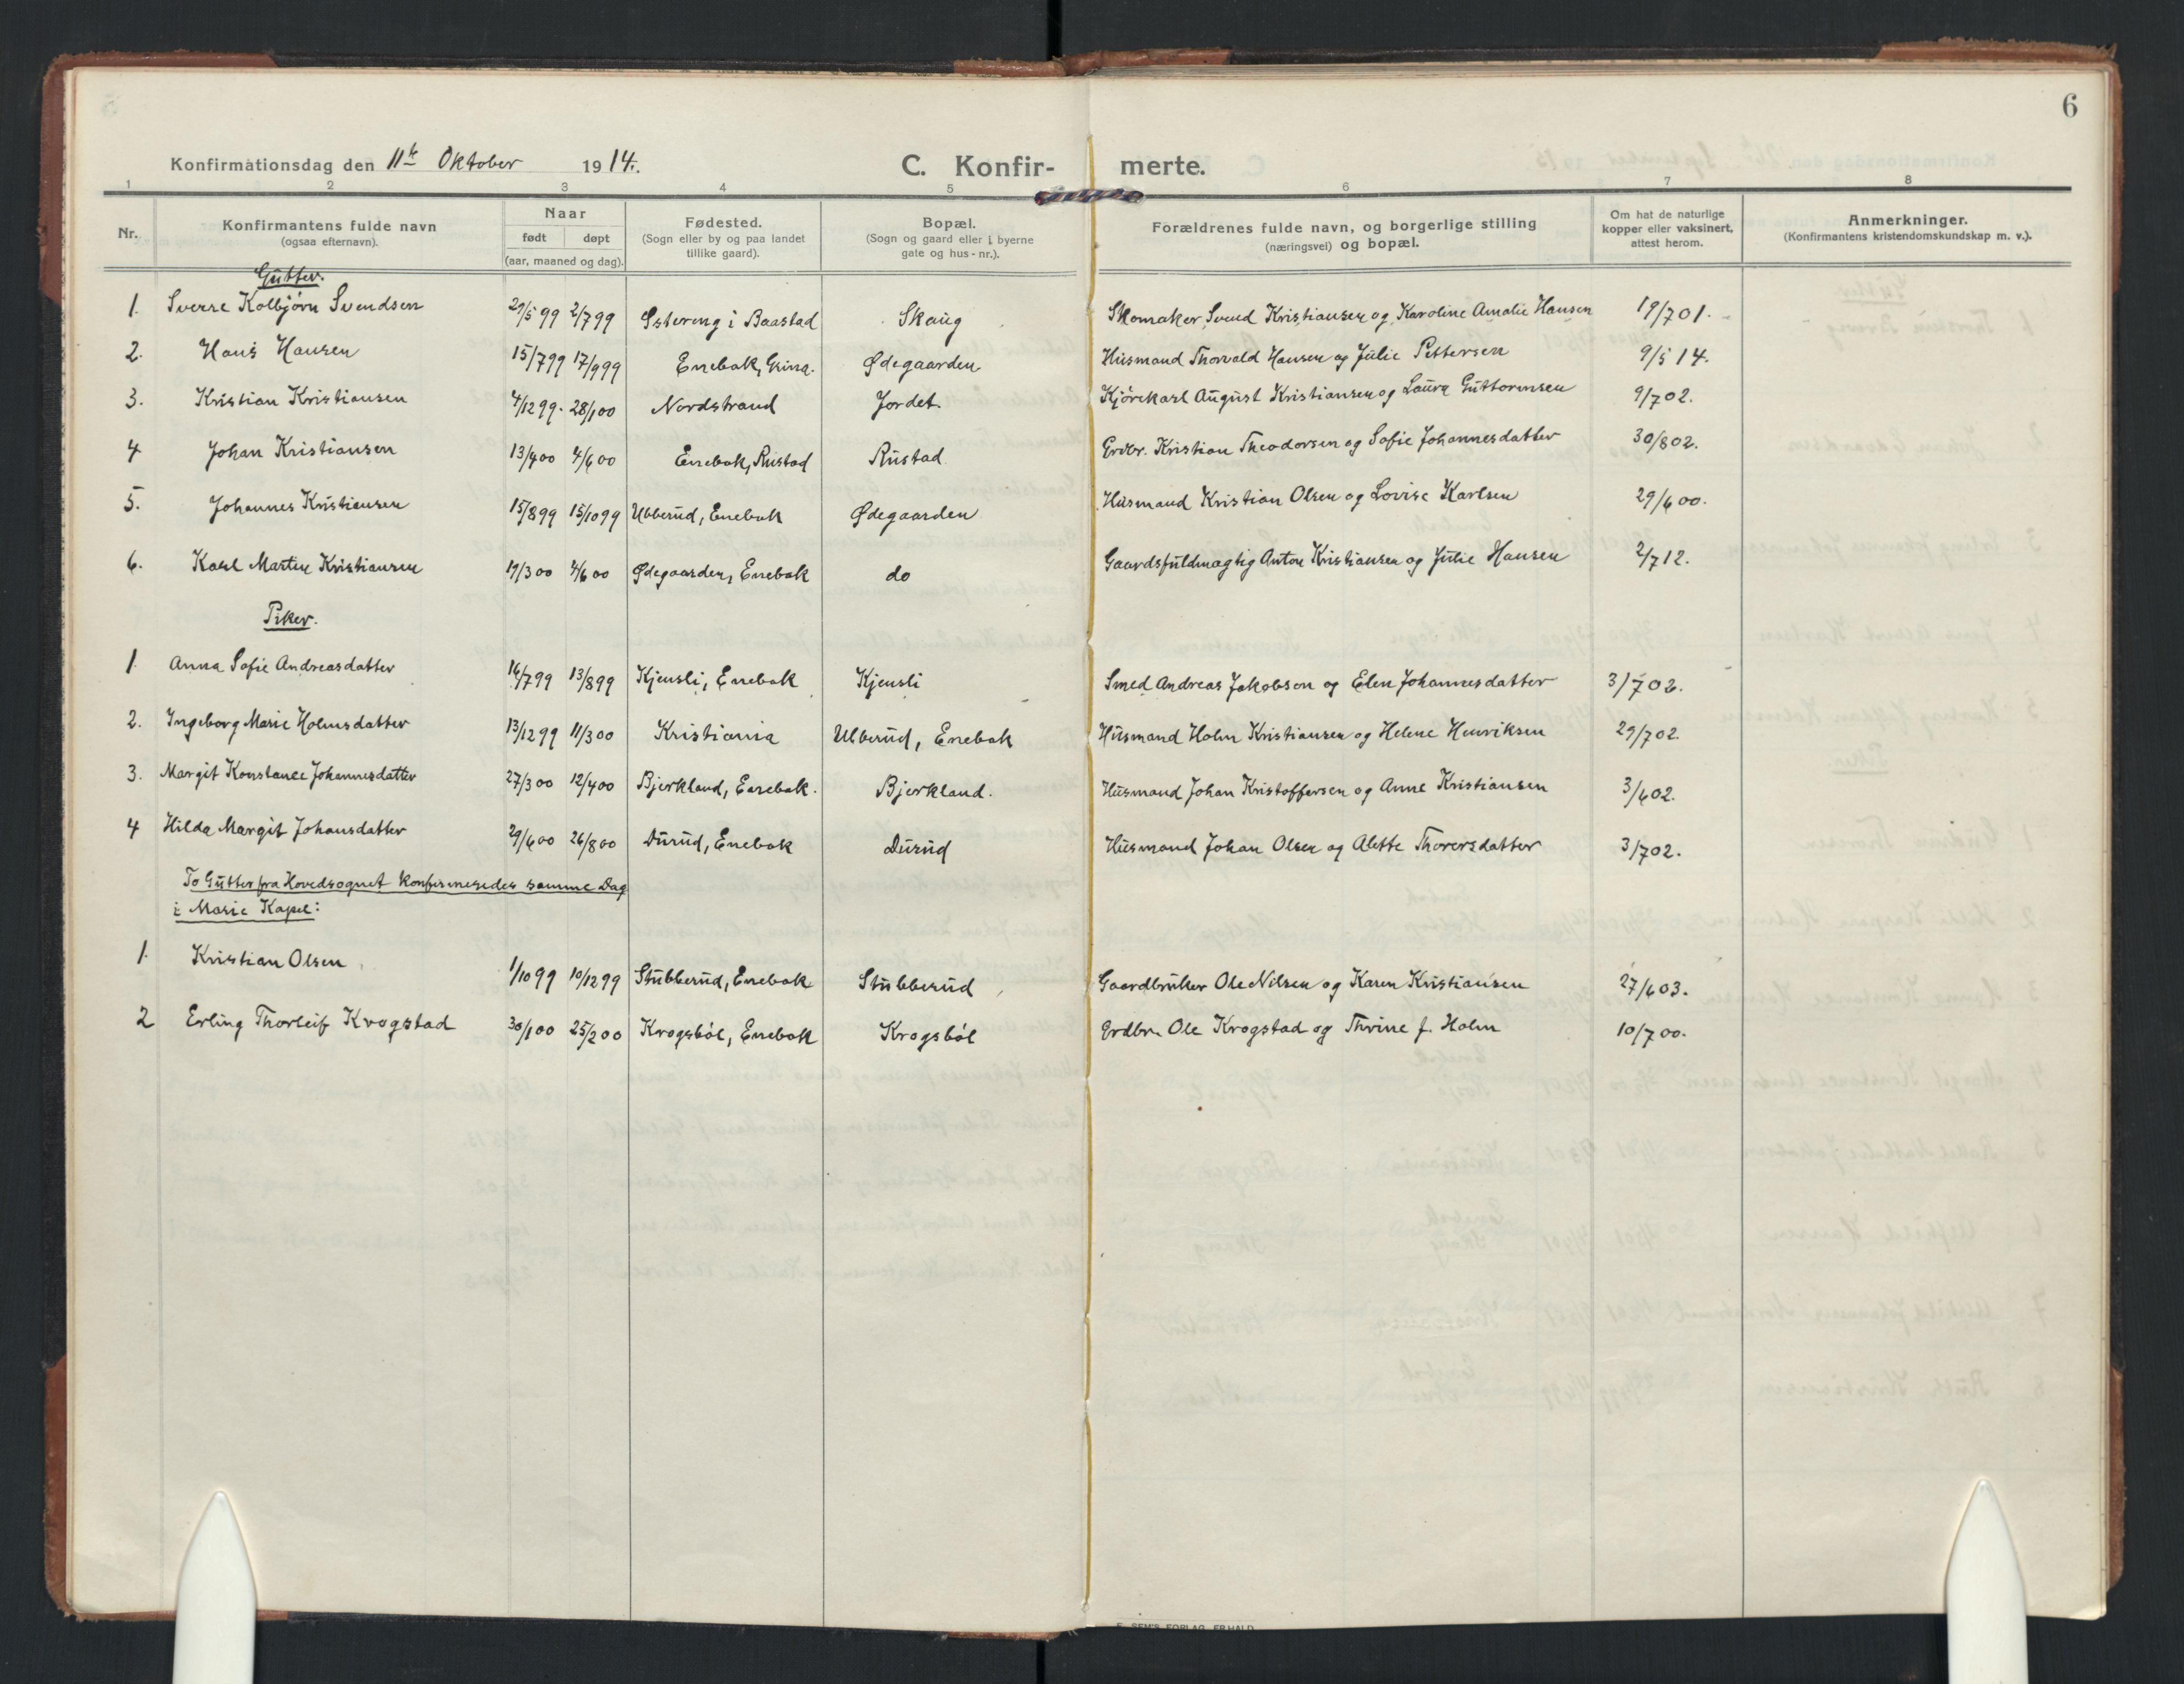 6
Konfirmationsdag den 11te Oktober 1914.
C. Konfir- merte.
1 2 3 4 5 6 7 8
Nr.
Konfirmantens fulde navn
(ogsaa efternavn).
Naar
født døpt
(aar, maaned og dag).
Fødested.
(Sogn eller by og paa landet
tillike gaard).
Bopæl.
(Sogn og gaard eller i byerne
gate og hus-nr.).
Forældrenes fulde navn, og borgerlige stilling
(næringsvei) og bopæl.
Om hat de naturlige
kopper eller vaksinert,
attest herom.
Anmerkninger.
(Konfirmantens kristendomskundskap m. v.).
Gutter.
1. Sverre Kolbjörn Svendsen 29/5 99 2/7 99 i Baastad Skaug Skomaker Svend Kristiansen og Karoline Amalie Hansen 19/7 01.
2. Hans Hansen 15/7 99 17/9 99 Enebak, Grina. Ødegaarden Husmand Thorvald Hansen og Julie Pettersen 9/5 14.
3. Kristian Kristiansen 4/12 99. 28/1 00 Nordstrand Jordet. Kjörekarl August Kristiansen og Laura Guttormsen 9/7 02.
4 Johan Kristiansen 13/4 00 4/6 00 Enebak, Rustad Rustad Grdbr. Kristian Theodorsen og Sofie Johannesdatter 30/8 02.
5. Johannes Kristiansen 15/8 99 15/10 99 Ulberud, Enebak Ødegaarden Husmand Kristian Olsen og Lovise Karlsen 29/6 00.
6. Karl Martin Kristiansen /3 00 4/6 00 Ødegaarden, Enebak do Gaardsfuldmægtig Anton Kristiansen og Julie Hansen 2/7 12.
Piker.
1. Anna Sofie Andreasdatter 14/7 99 13/8 99 Kjensli, Enebak Kjensli Smed Andreas Jakobsen og Elen Johannesdatter 3/7 02.
2. Ingeborg Marie Holmsdatter 13/12 99 11/3 00 Kristiania Ulberud, Enebak Husmand Holm Kristiansen og Helene Henriksen 29/7 02.
3. Margit Konstance Johannesdatter 27/3 00 12/4 00 Bjerkland, Enebak. Bjerkland. Husmand Johan Kristoffersen og Anne Kristiansen 3/6 02.
4 Hilda Margit Johansdatter 29/6 00 26/8 00 Durud, Enebak Durud Husmand Johan Olsen og Alette Thorersdatter 3/7 02.
To Gutter fra Hovedsognet konfirmeredes samme Dag
i Marie Kapel:
1. Kristian Olsen 1/10 99 10/12 99 Stubberud, Enebak Stubberud Gaardbruker Ole Nilsen og Karen Kristiansen 27/6 03.
2 Erling Thorleif Krogstad 30/1 00 25/2 00 Krogsböl, Enebak Krogsböl Grdbr. Ole Krogstad og Thrine f. Holm 10/7 00.